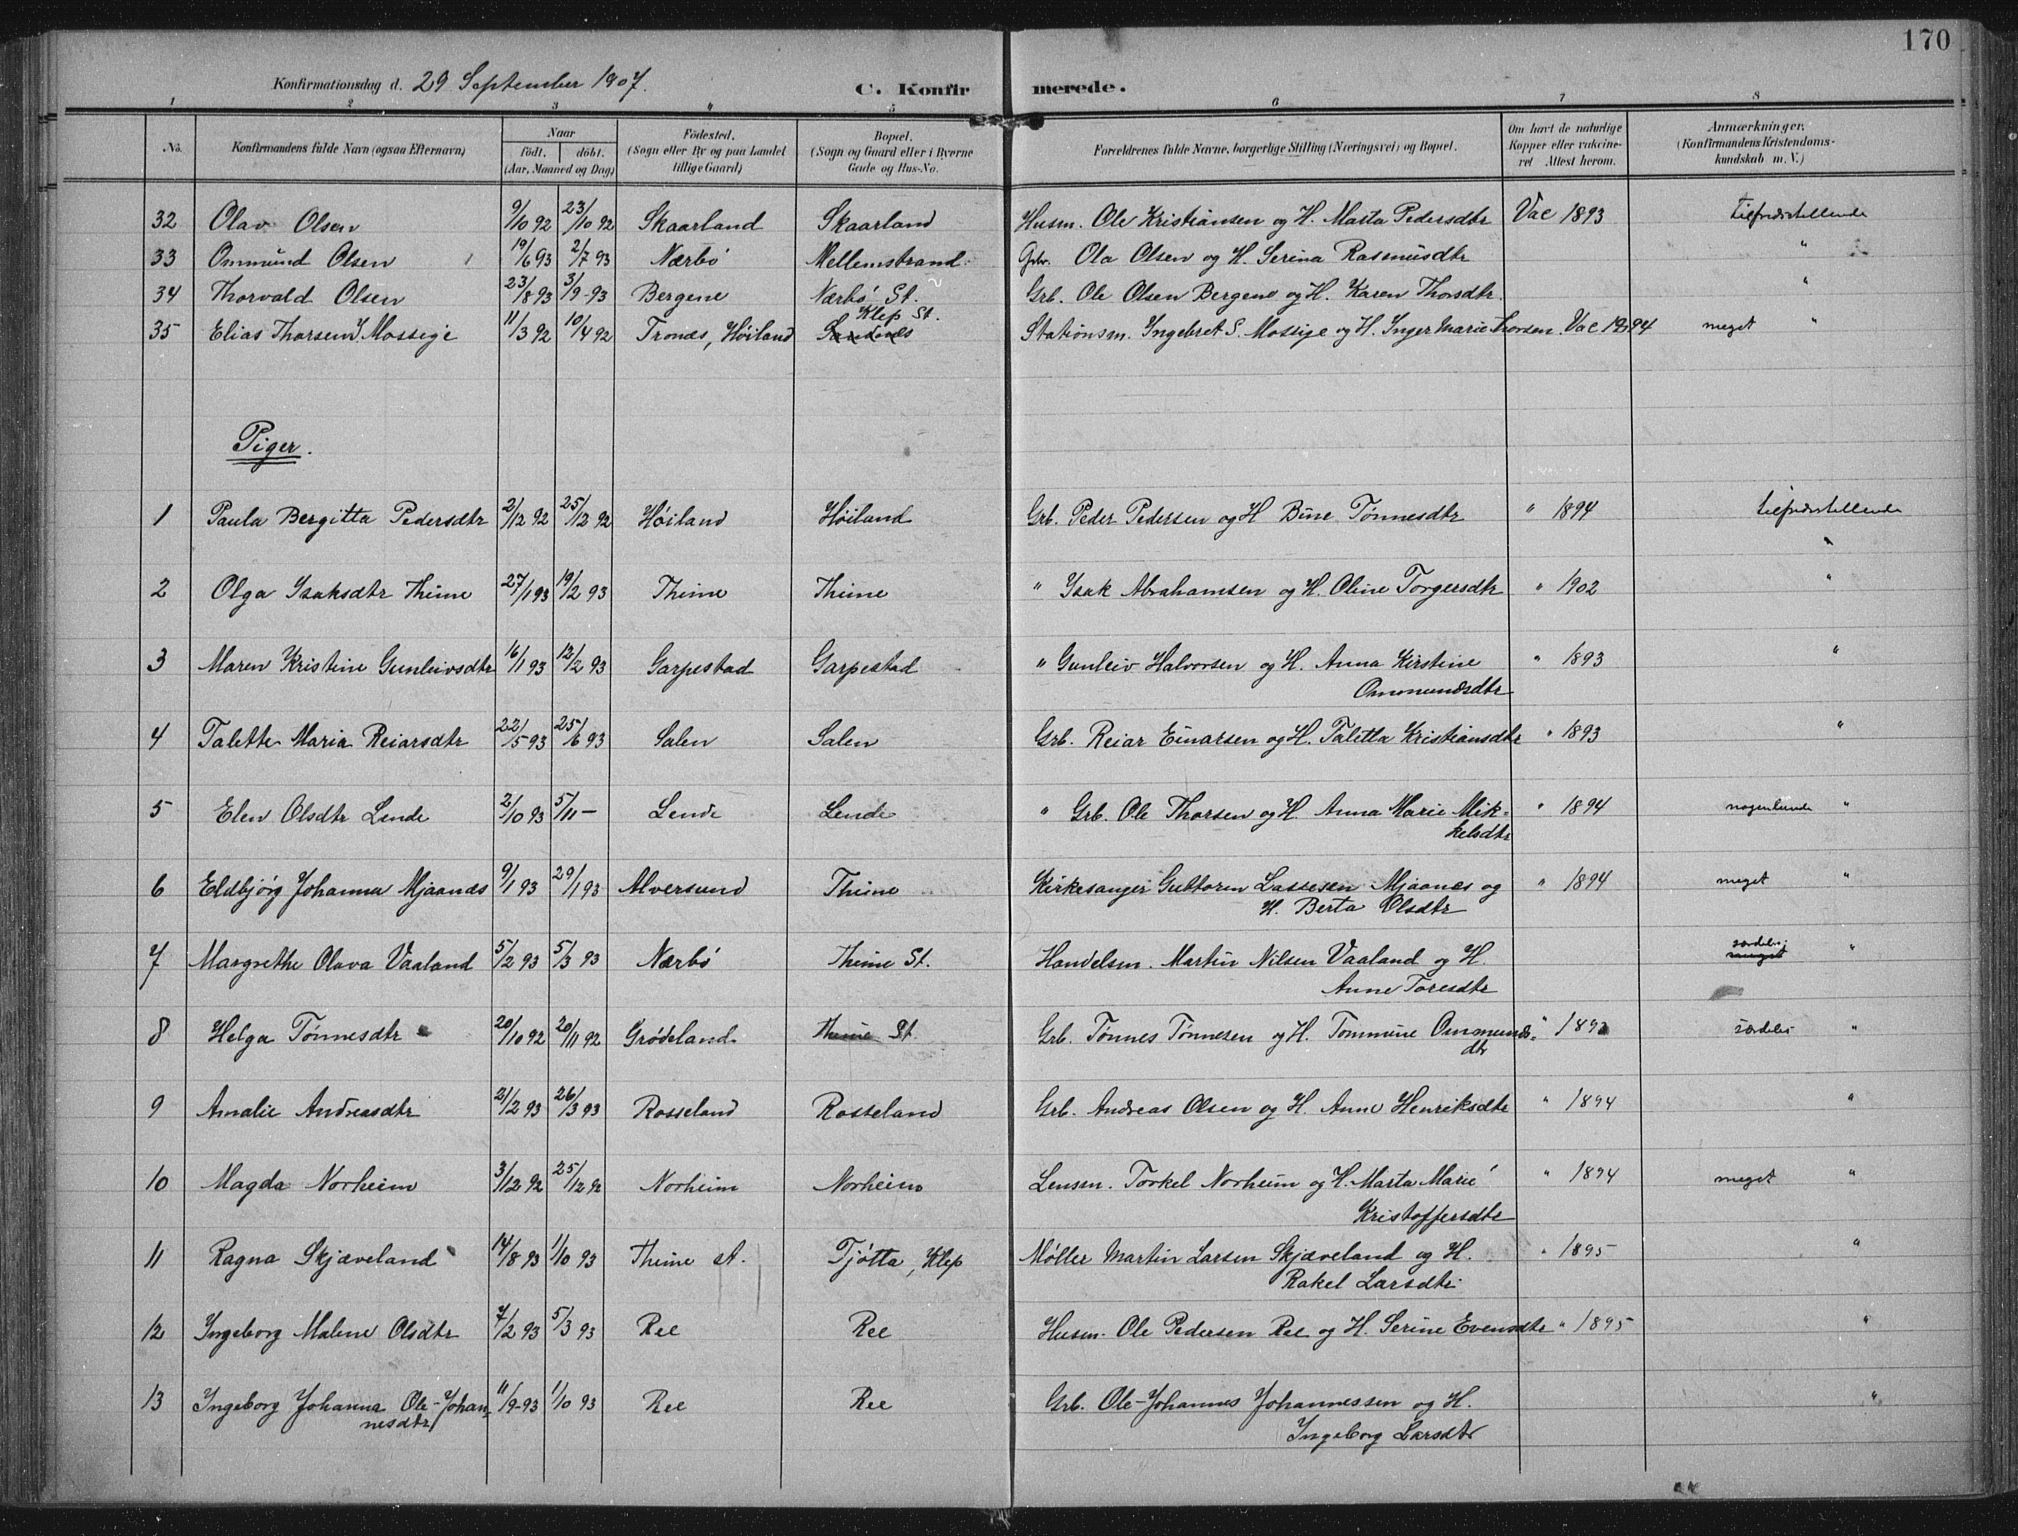 170
Konfirmationsdag d. 29 September 1907. C. Konfirmerede.
1 2 3 4 5 6 7 8
No. Konfirmandens fulde Navn (ogsaa Efternavn) Naar födt. döbt. (Aar, Maaned og Dag) Födested. (Sogn eller By og paa Landet tillige Gaard) Bopæl. (Sogn og Gaard eller i Byerne Gade og Hus-No. Forældrenes fulde Navne, borgerlige Stilling (Næringsvei) og Bopæl. Om havt de naturlige Kopper eller vakcineret Attest herom. Anmærkninger. (Konfirmandens Kristendomskundskab m. V.)
32 Olav Olsen 9/10 92 23/10 92 Skaarland Skaarland Husm. Ole Kristiansen og H. Marta Pedersdtr Vac 1893 tilfredsstillende
33 Ommund Olsen 19/6 93 2/7 93 Nærbö Mellemstrand Grb. Ola Olsen og H. Serina Rasmusdtr "
34 Thorvald Olsen 23/8 93 3/9-93 Bergene Nærbö St. Grb. Ole Olsen Bergene og H. Karen Thorsdtr. "
Klep St.
35 Elias Thorsen I. Mossige 11/3 92 10/4 92 Tronæs, Höiland Sandnæs Stationsm. Ingebret S. Mossige og H. Inger Marie Thorsen Vac 1894 meget "
Piger.
1 Paula Bergitta Pedersdtr 2/12 92 25/12 92 Höiland Höiland Grb. Peder Pedersen og H Bine Tönnesdtr " 1894 tilfredsstillende
"
2 Olga Isaksdtr Thime 27/1 93 19/2 93 Thime Thime " Isak Abrahamsen og H. Oline Torgersdtr " 1902 "
3 Maren Kristine Gunleivsdtr 16/1 93 12/2 93 Garpestad Garpestad " Gunleiv Halvorsen og H. Anna Kirstine " 1893 "
Ommundsdtr
4 Talette Maria Reiarsdtr 22/5 93 25/6 93 Salen Salen Grb. Reiar Einarsen og H. Taletta Kristiansdtr " 1893 "
5 Elen Olsdtr Lende 2/10 93 5/11 - Lende Lende " Grb. Ole Thorsen og H Anna Marie Mik- " 1894 nogenlunde "
kelsdtr
6 Eldbjörg Johanna Mjaanes 9/1 93 29/1 93 Alversund Thime Kirkesanger Guttorm Lassesen Mjaanes og " 1894 meget "
H. Berta Olsdtr
7 Margrethe Olava Vaaland 5/2 93 5/3 93 Nærbö Thime St. Handelsm. Martin Nilsen Vaaland og H. særdeles "
meget
Anne Toresdtr
8 Helga Tönnesdtr 20/10 92 20/11 92 Grödeland Thime St. Grb. Tönnes Tönnesen og H. Tommine Ommunds- " 1893 særdeles "
dtr
9 Amalie Andreasdtr 21/2 93 26/3 93 Rosseland Rosseland Grb. Andreas Olsen og H. Anne Henriksdtr " 1894 "
10 Magda Norheim 3/12 92 25/12 92 Norheim Norheim Lensm. Torkel Norheim og H. Marta Marie " 1894 meget "
Kristoffersdtr
11 Ragna Skjæveland 14/8 93 1/10 93 Thime st. Tjötta, Klep Möller Martin Larsen Skjæveland og H. " 1895 "
Rakel Larsdtr.
12 Ingeborg Malene Olsdtr 7/2 93 5/3 93 Ree Ree Husm. Ole Pedersen Ree og H. Serine Evensdtr " 1895 "
13 Ingeborg Johanna Ole-Johan- 11/9-93 1/10 93 Ree Ree Grb. Ole-Johannes Johannessen og H. "
nesdtr Ingeborg Larsdtr